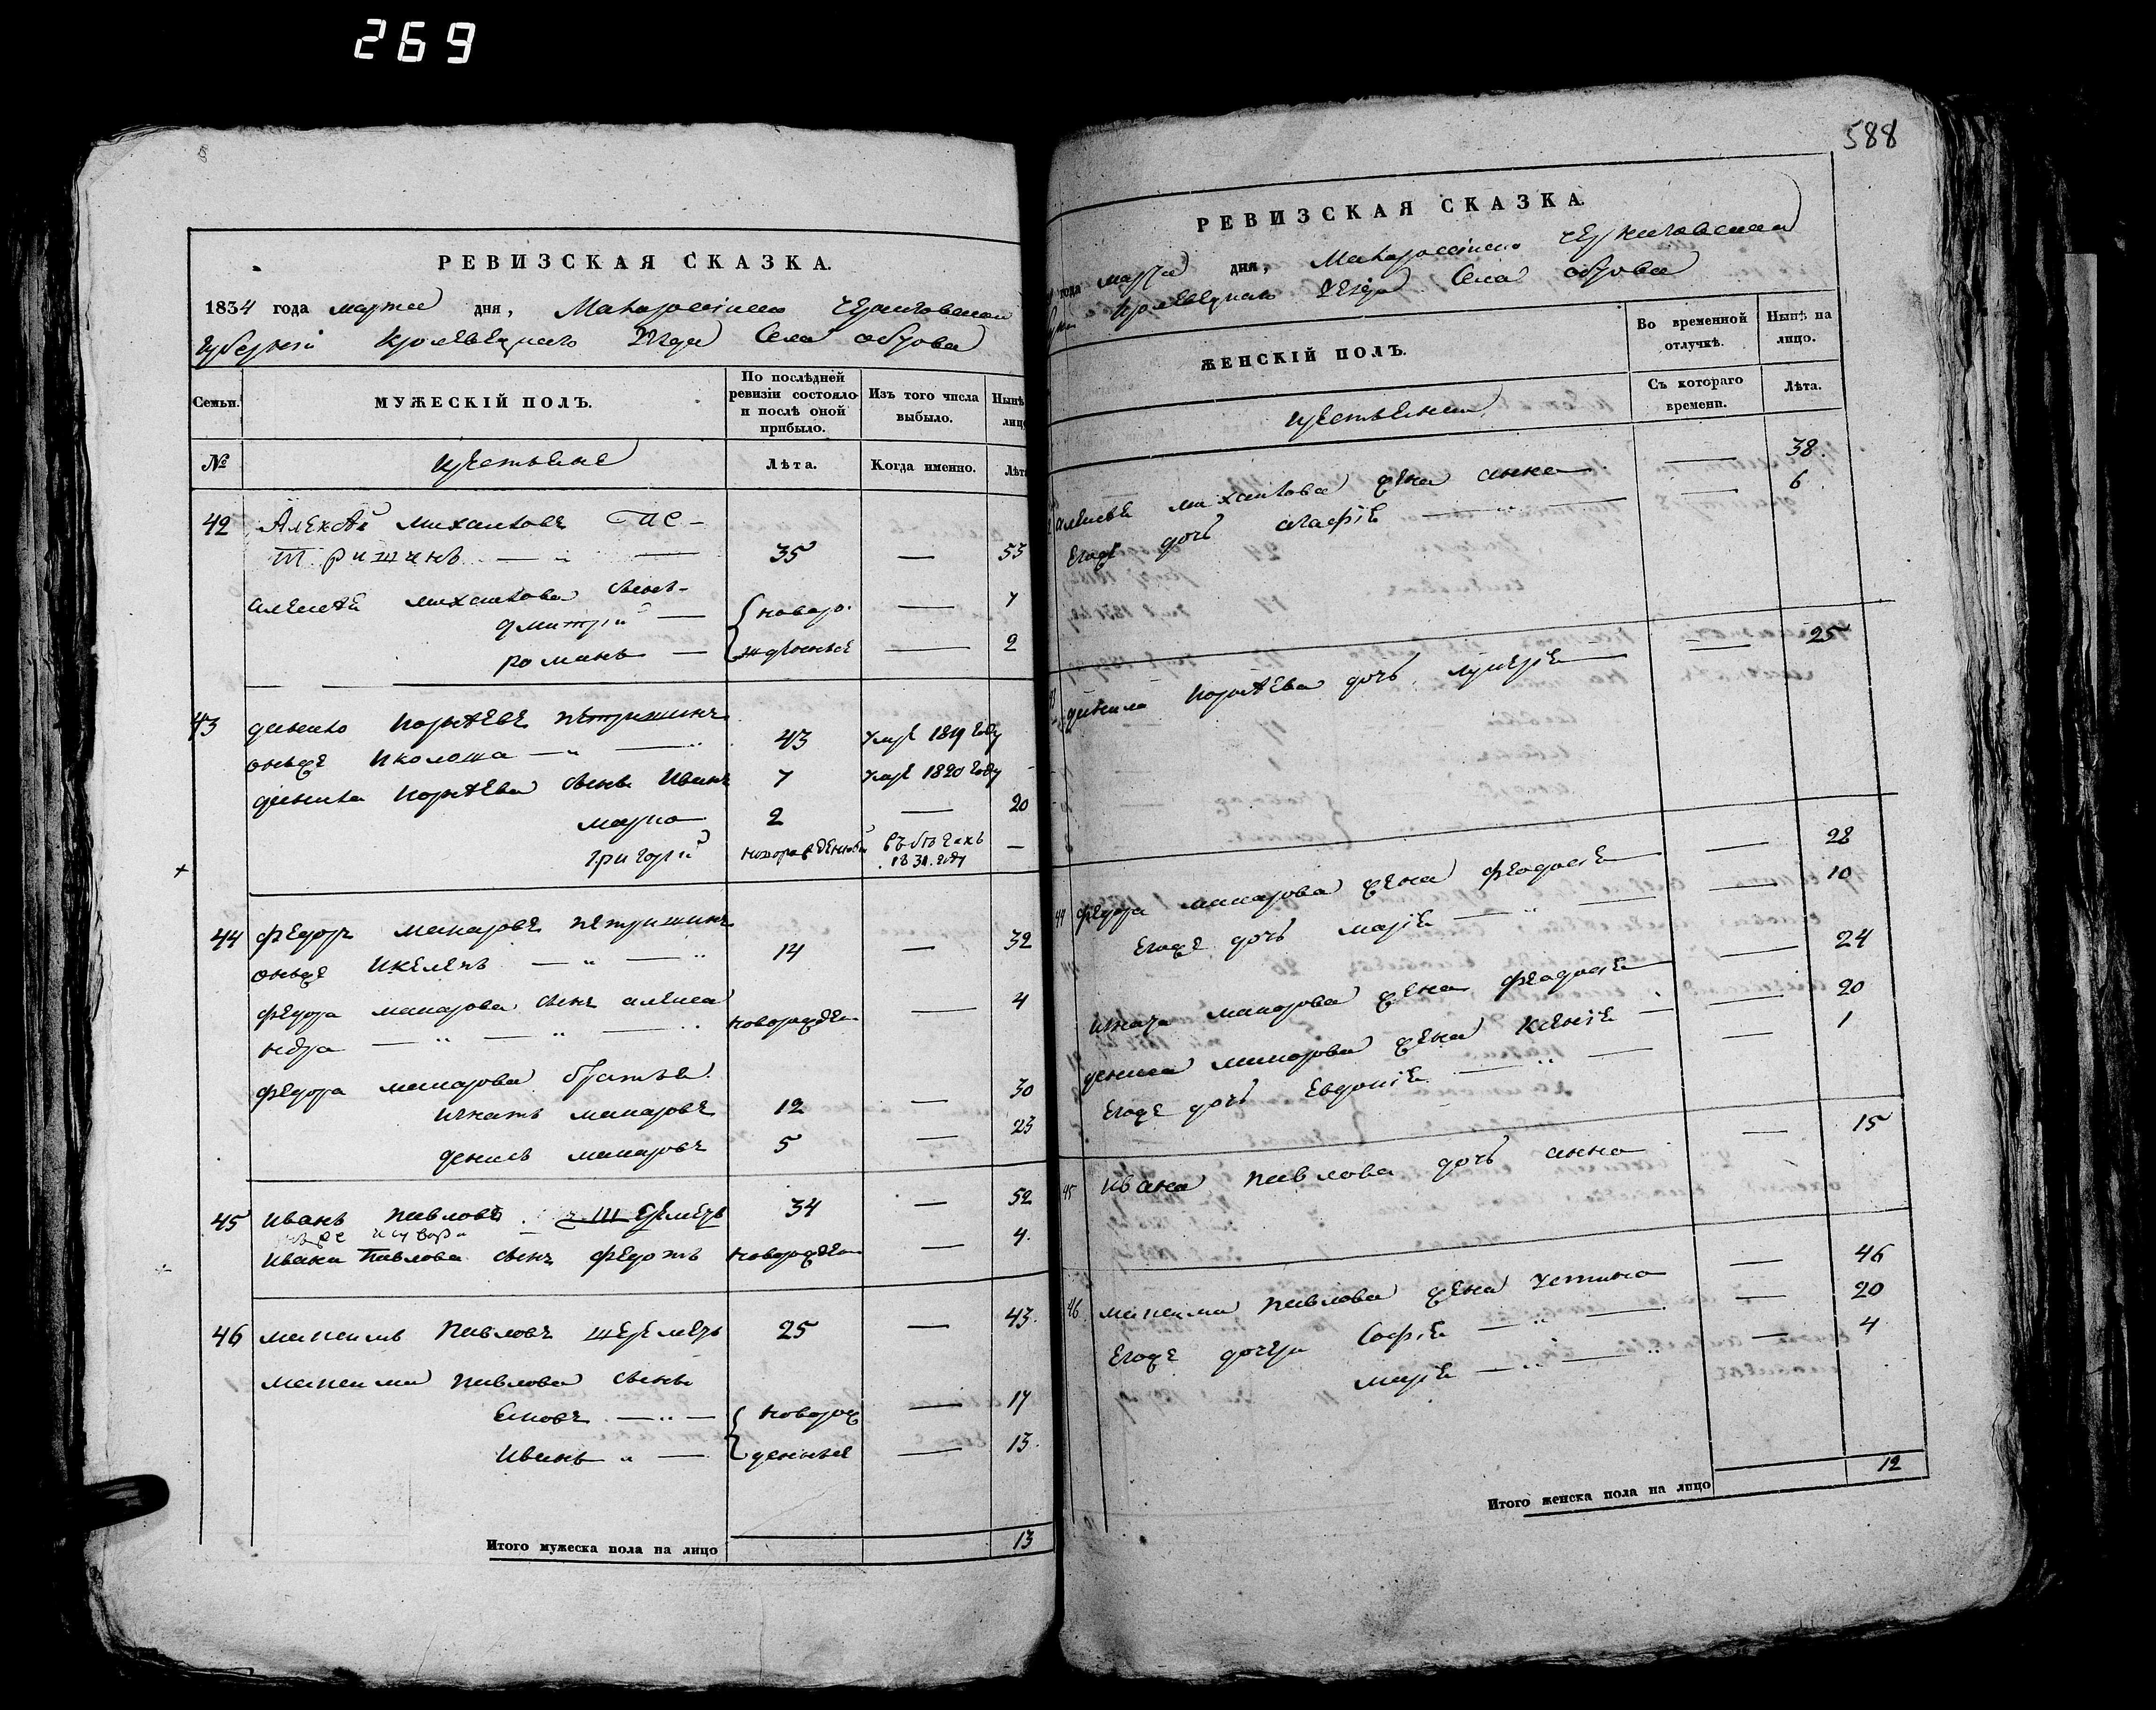 269
РЕВИЗСКАЯ СКАЗКА.
1834 года марта дня, Малороссійско Черниговской
Губерніи Кролевецкаго уезда Села обтова
Семьи.
МУЖЕСКІЙ ПОЛЪ.
По послѣдней ревизіи состояло и послѣ оной прибыло.
Изъ того числа выбыло.
Нынѣ лицо
№
крестьяне
Лѣта.
Когда именно.
Лѣта
42 Алексѣй михаиловъ Пе-
тришинъ 35 — 53
Алексѣя михаилова сыны-
дмитрій { новоро- — 7
романъ { жденные — 2
43 данило корнѣевъ пѣтришинъ
онъже Иколоша 43 умре 1819 году
данила корнѣева сынъ Иванъ 7 умре 1820 году —
марко 2 — 20
григорій новорожденный въ бѣгахъ 1831. году —
44 федоръ макаровъ пѣтришинъ
онъже 14 — 32
федора макарова сынъ алекса
ндра новорожден — 4
федора макарова братья
игнатъ макаровъ 12 — 30
денисъ макаровъ 5 — 23
45 иванъ павловъ шереметъ 34 — 52
ивана Павлова сынъ федотъ новорожден — 4.
46 максимъ павловъ шереметъ 25 — 43.
максима павлова сыны
{ новорож — 17
иванъ { денные — 13.
Итого мужеска пола на лицо 13
588
РЕВИЗСКАЯ СКАЗКА.
года марта дня, Малороссійско Черниговской
Кролевецкаго уезда Села обтова
ЖЕНСКІЙ ПОЛЪ.
Во временной отлучкѣ.
Нынѣ на лицо.
крестьянки
Съ котораго времени.
Лѣта.
алексѣя михаилова жена анна — 38.
Егоже дочь агафія — 6
данила корнѣева дочь лукерія — 25
44 федора макарова жена феодосія — 28
Егоже дочь марія — 10
игната макарова жена феодосія — 24
дениса макарова жена ксенія — 20
Егоже дочь Евдокія — 1
45 ивана павлова дочь анна — 15
46. максима павлова жена устина — 46
Егоже дочери софія — 20
марія — 4
Итого женска пола на лицо 12